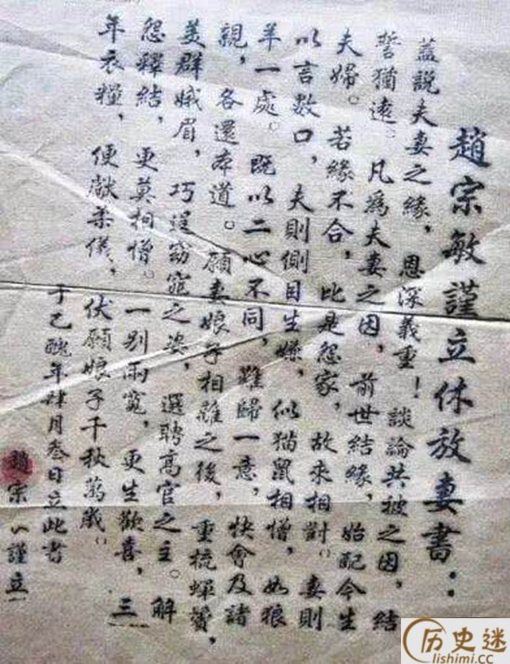 趙宗敏謹立休放妻書：
蓋説夫妻之緣，恩深義重！談論共被之因，結
誓猶遠。凡為夫妻之因，前世結緣，始配今生
夫婦。若緣不合，比是怨家，故來相對。妻則
以言数口，夫則側目生嫌，似猫鼠相憎，如狼
羊一處。既以二心不同，難歸一意，快會及諸
親，各還本道。願妻娘子相離之後，重梳蟬鬢，
美群娥眉，巧逞窈窕之姿，選聘高官之主。解
怨釋結，更莫相憎。一別兩寬，更生歡喜，三
年衣糧，便獻柔儀，伏願娘子千秋萬歲。
于乙醜年肆月叁日立此書
趙宗 謹立
历史迷
lishimi.cc